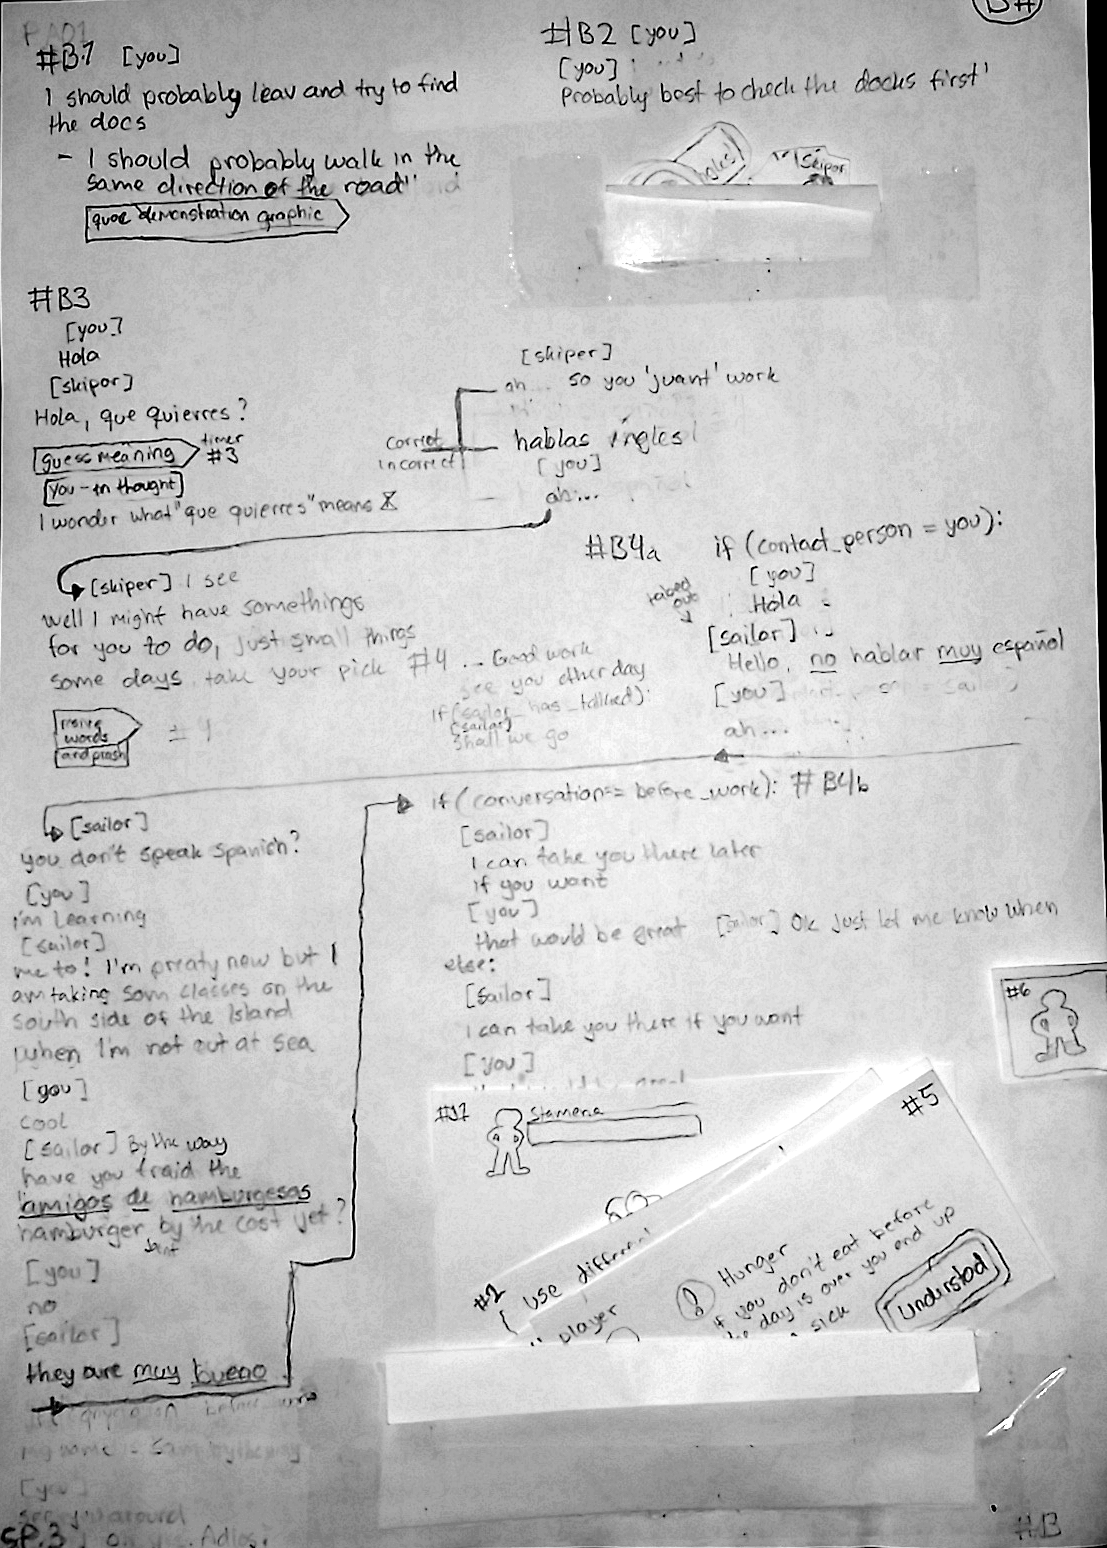 #B.1 [you]
I should probably leav and try to find
the docs
- I should probably walk in the
same direction of the road"
quae demonstration graphic
#B2 [you]
[you]
Probably best to check the docks first'
ngles!
Skipor
#B3
[you]
Hola
[skipor]
Hola, que quierres?
guess meaning
timer
#3
[you - in thought]
I wonder what "que quierres" means
[skiper]
ah... so you 'juant' work
correct
incorrect
hablas ingles!
[you]
ah...
[skiper] I see
well I might have somethings
for you to do, just small things
some days take your pick #4 ... Good work
see you other day
if (sailor_has_tallked):
[sailor]
shall we go
words
and prash
#B4a
if (contact_person = you):
[you]
Hola
[sailor]
Hello, no hablar muy español
[you]
ah...
[sailor]
you don't speak spanich?
[you]
I'm Learning
[sailor]
me to! I'm preaty new but I
am taking som classes on the
south side of the Island
when I'm not out at sea
[you]
cool
[sailor] By the way
have you traid the
"amigos de hamburgesas
hamburger by the cost yet?
[you]
no
[sailor]
they are muy bueno
my name
[you]
see around
Adios
SP.3
if (conversation== before_work): #B4b
[sailor]
I can take you there later
if you want
[you]
that would be great [sailor] Ok just let me know when
else:
[sailor]
I can take you there if you want
[you]
#6
#12
Stamena
#2
use different
player
#5
! Hunger
if you don't eat before
day is over you end up
sick
Understod
#B